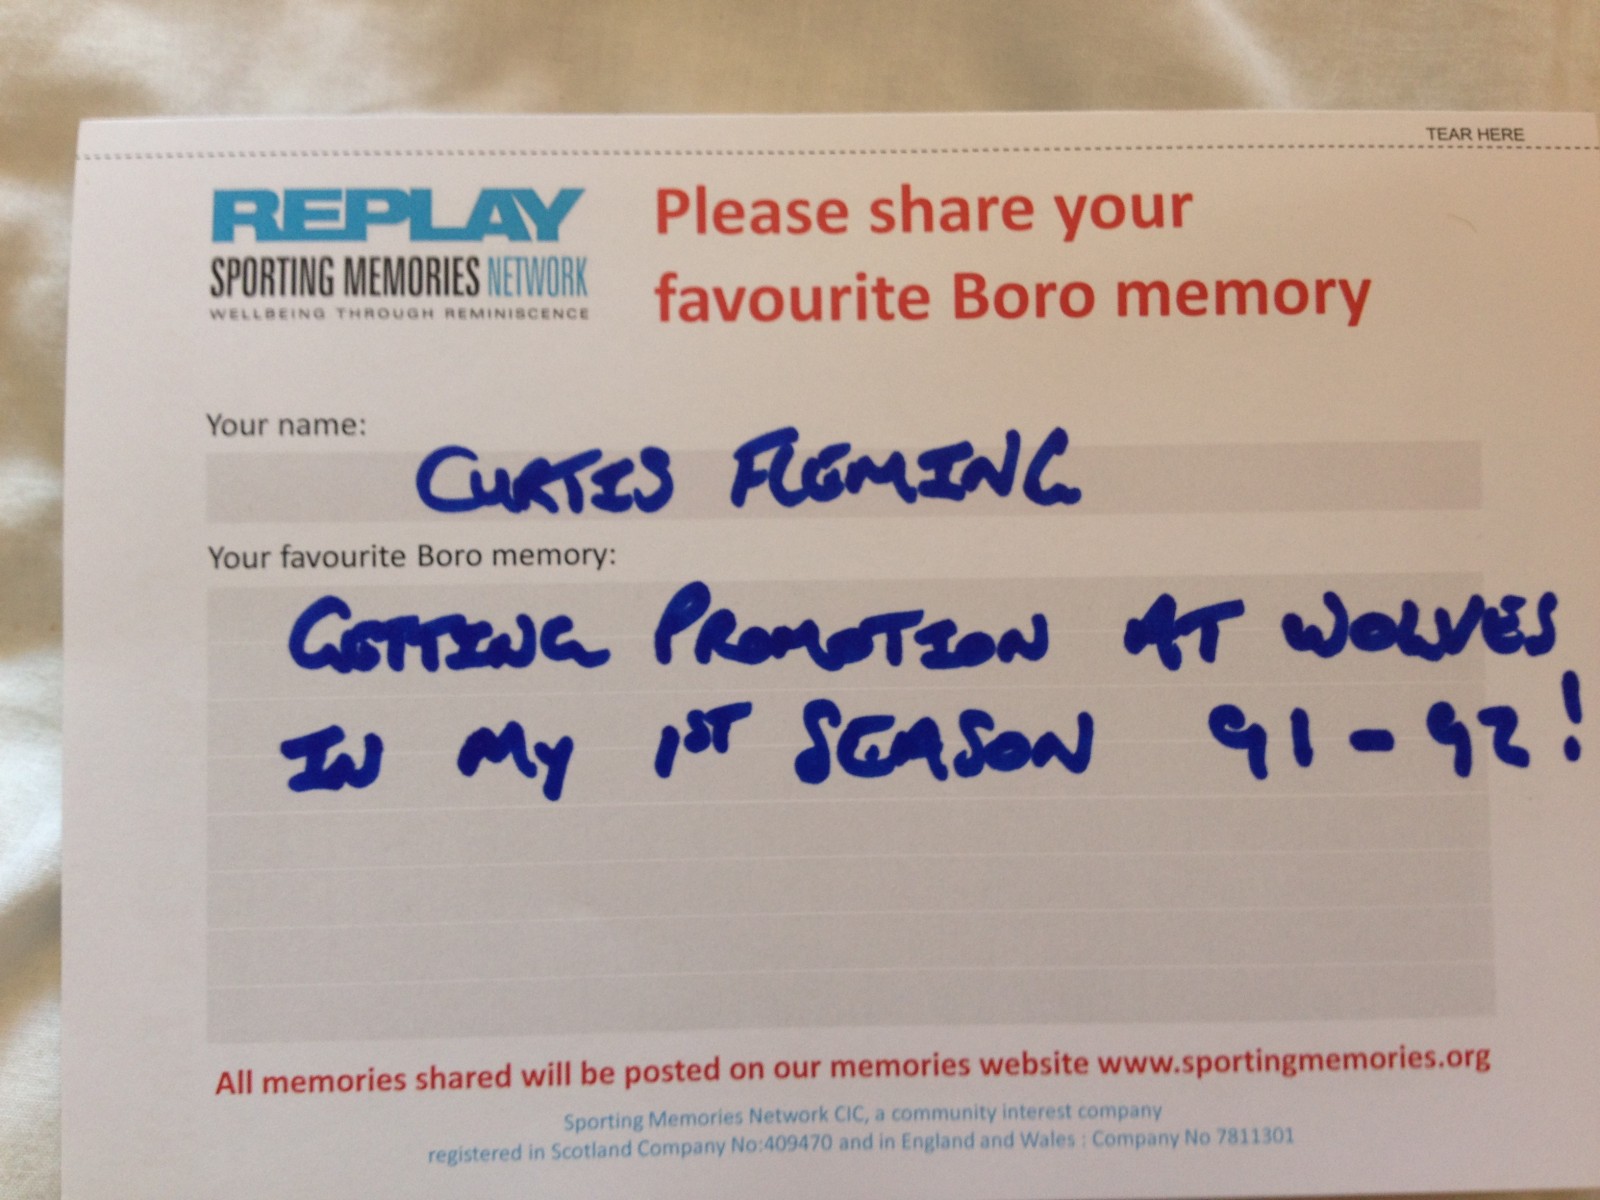 TEAR HERE
REPLAY
SPORTING MEMORIES NETWORK
WELLBEING THROUGH REMINISCENCE
Please share your
favourite Boro memory
Your name:
CURTIS FLEMING
Your favourite Boro memory:
GETTING PROMOTION AT WOLVES
IN MY 1ST SEASON 91-92!
All memories shared will be posted on our memories website www.sportingmemories.org
Sporting Memories Network CIC, a community interest company
registered in Scotland Company No:409470 and in England and Wales : Company No 7811301